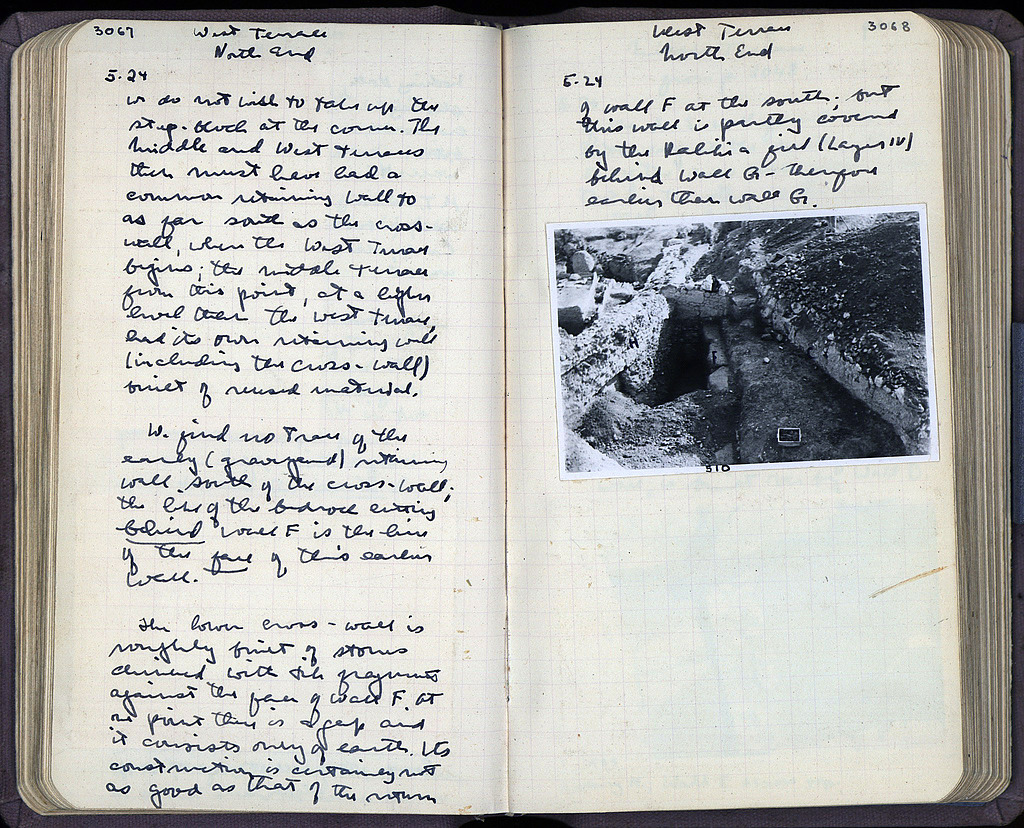 3067
West Terrace
North End
5.24
we do not wish to take up the
step-block at the corner. The
Middle and West terraces
then must have had a
common retaining wall to
as far south as the cross-
wall, where the West Terrace
begins; the middle terrace
from this point, at a higher
level than the West terrace,
had its own retaining wall
(including the cross-wall)
built of reused material.
We find no trace of the
early (graveyard) retaining
wall south of the cross-wall;
the line of the bedrock cutting
behind wall F is the line
of the face of this earlier
wall.
The lower cross-wall is
roughly built of stones
chinked with tile fragments
against the face of wall F. At
one point there is a gap and
it consists only of earth. Its
construction is certainly not
as good as that of the return
3068
West Terrace
North End
5.24
of wall F at the south; but
this wall is partly covered
by the fill (Layer IV)
behind wall G - therefore
earlier than wall G.
510